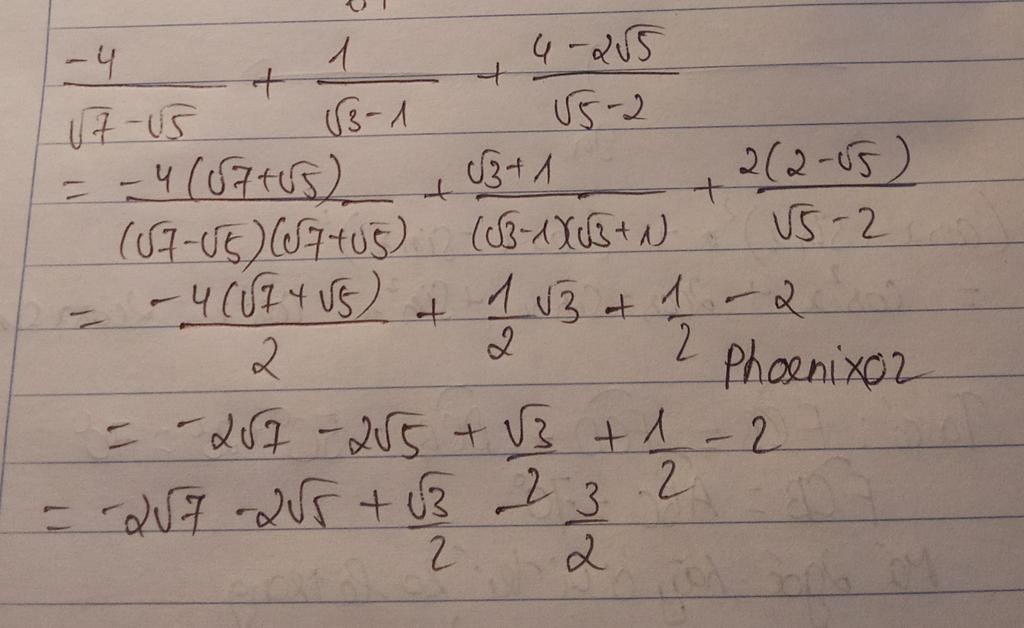 -4/(√7-√5) + 1/(√3-1) + (4-2√5)/(√5-2)
= -4(√7+√5)/((√7-√5)(√7+√5)) + (√3+1)/((√3-1)(√3+1)) + 2(2-√5)/(√5-2)
= -4(√7+√5)/2 + 1/2 √3 + 1/2 - 2
Phoenix02
= -2√7 - 2√5 + √3/2 + 1/2 - 2
= -2√7 - 2√5 + √3/2 - 3/2